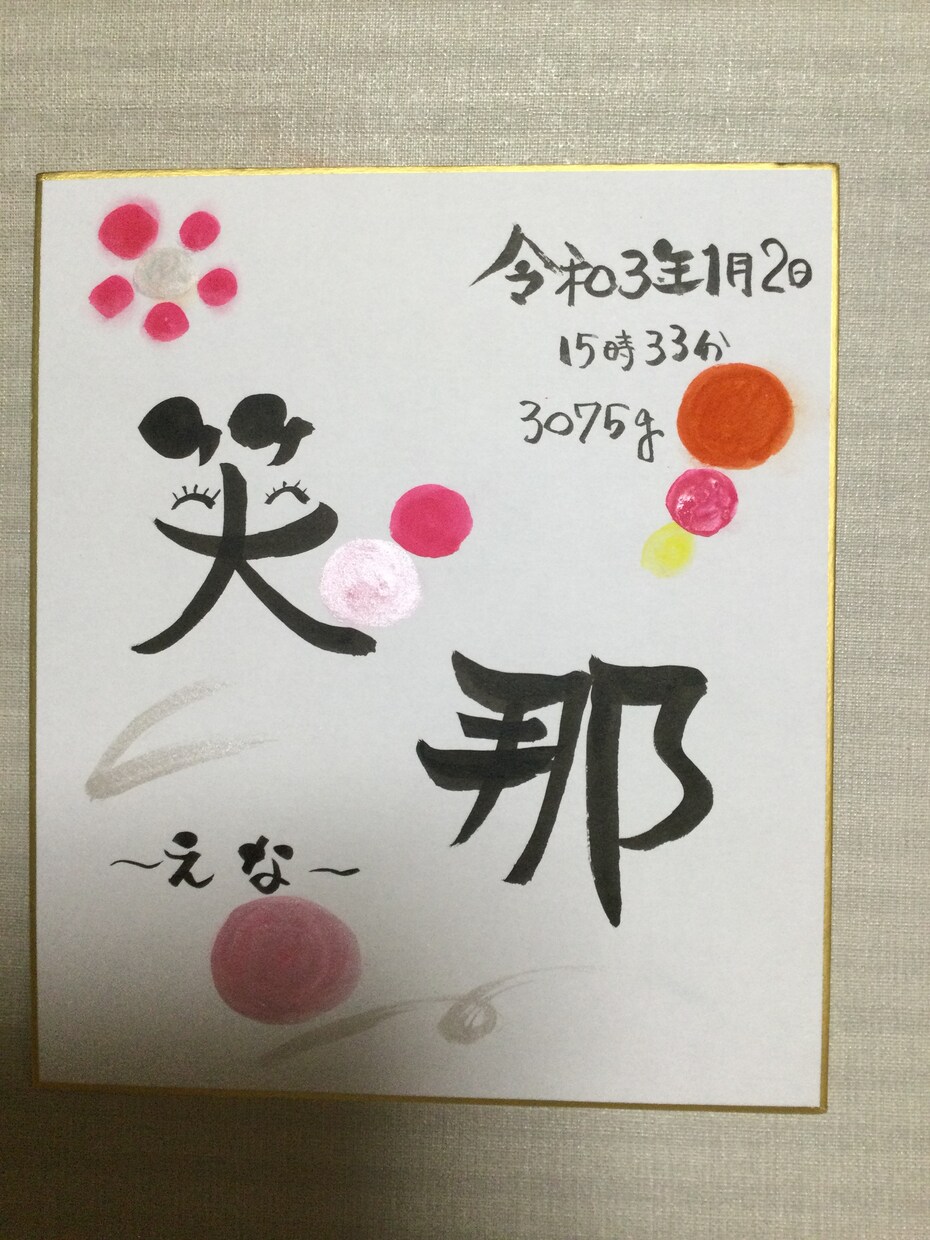 令和3年1月2日
15時33分
3075g
笑
那
～えな～